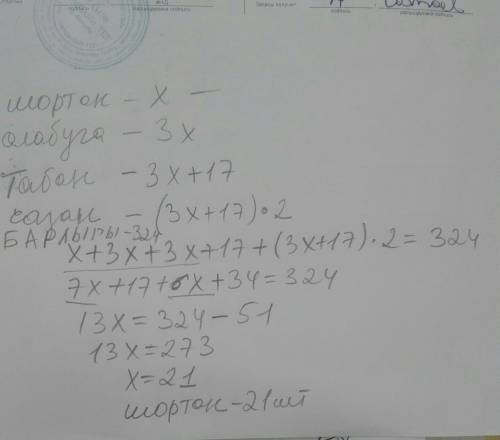 шортан – х –
алабуга – 3х
Табан – 3х+17
сазан – (3х+17)•2
БАРЛЫГЫ-324
х+3х+3х+17+(3х+17)•2=324
7х+17+6х+34=324
13х=324-51
13х=273
х=21
шортан-21шт